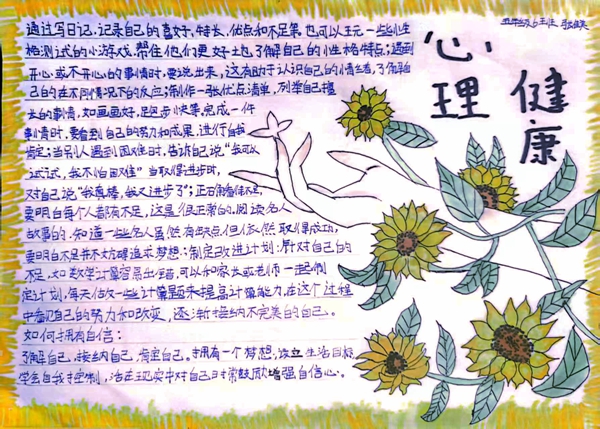 心理
健康
通过写日记,记录自己的喜好,特长,优点和不足等。也可以玩一些性
格测试的小游戏,帮住他们更好地了解自己的性格特点;遇到
开心或不开心的事情时,要说出来,这有助于认识自己的情绪,了解自
己的在不同情况下的反应;制作一张优点清单,列举自己擅
长的事情,如画画好,跑步快等,完成一件
事情时,要看到自己的努力和成果,进行自我
肯定;当别人遇到困难时,告诉自己说“我可以
试试,我不怕困难”当取得进步时,
对自己说“我真棒,我又进步了”;正确看待不足,
要明白每个人都有不足,这是很正常的。阅读名人
故事的,知道一些名人虽然有缺点但依然取得成功,
要明白不足并不妨碍追求梦想;制定改进计划:针对自己的
不足,如数学计算容易出错,可以和家长或老师一起制
定计划,每天做一些计算题来提高计算能力,在这个过程
中看见自己的努力和改变,逐渐接纳不完美的自己。
如何拥有自信:
了解自己,接纳自己,肯定自己。拥有一个梦想,设立生活目标,
学会自我控制,活在现实中对自己时常鼓励增强自信心。